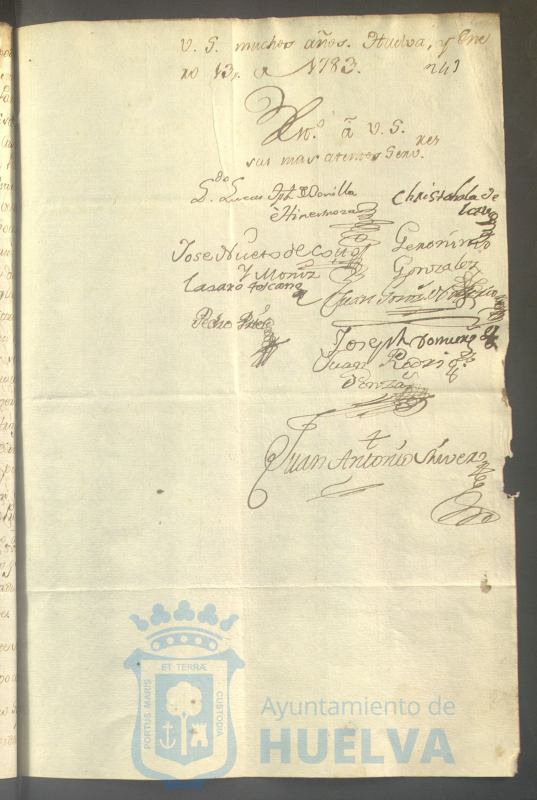 V. S. muchos años. Huelva, y Ene
ro 13, de 1783.
241
Rmo. â V. S.
sus mas atentos Serv.res
L.do Lucas Jph Bonilla
ê Hinestroza
Christobal de
Jose Nuñez de Cotto
y Moniz
Geronimo
Gonzales
Lasaro toscano
Juan
Pedro
Joseph Romero
Juan Rodrig.
Juan Antonio
ET TERRÆ
PORTUS MARIS
CUSTODIA
Ayuntamiento de
HUELVA